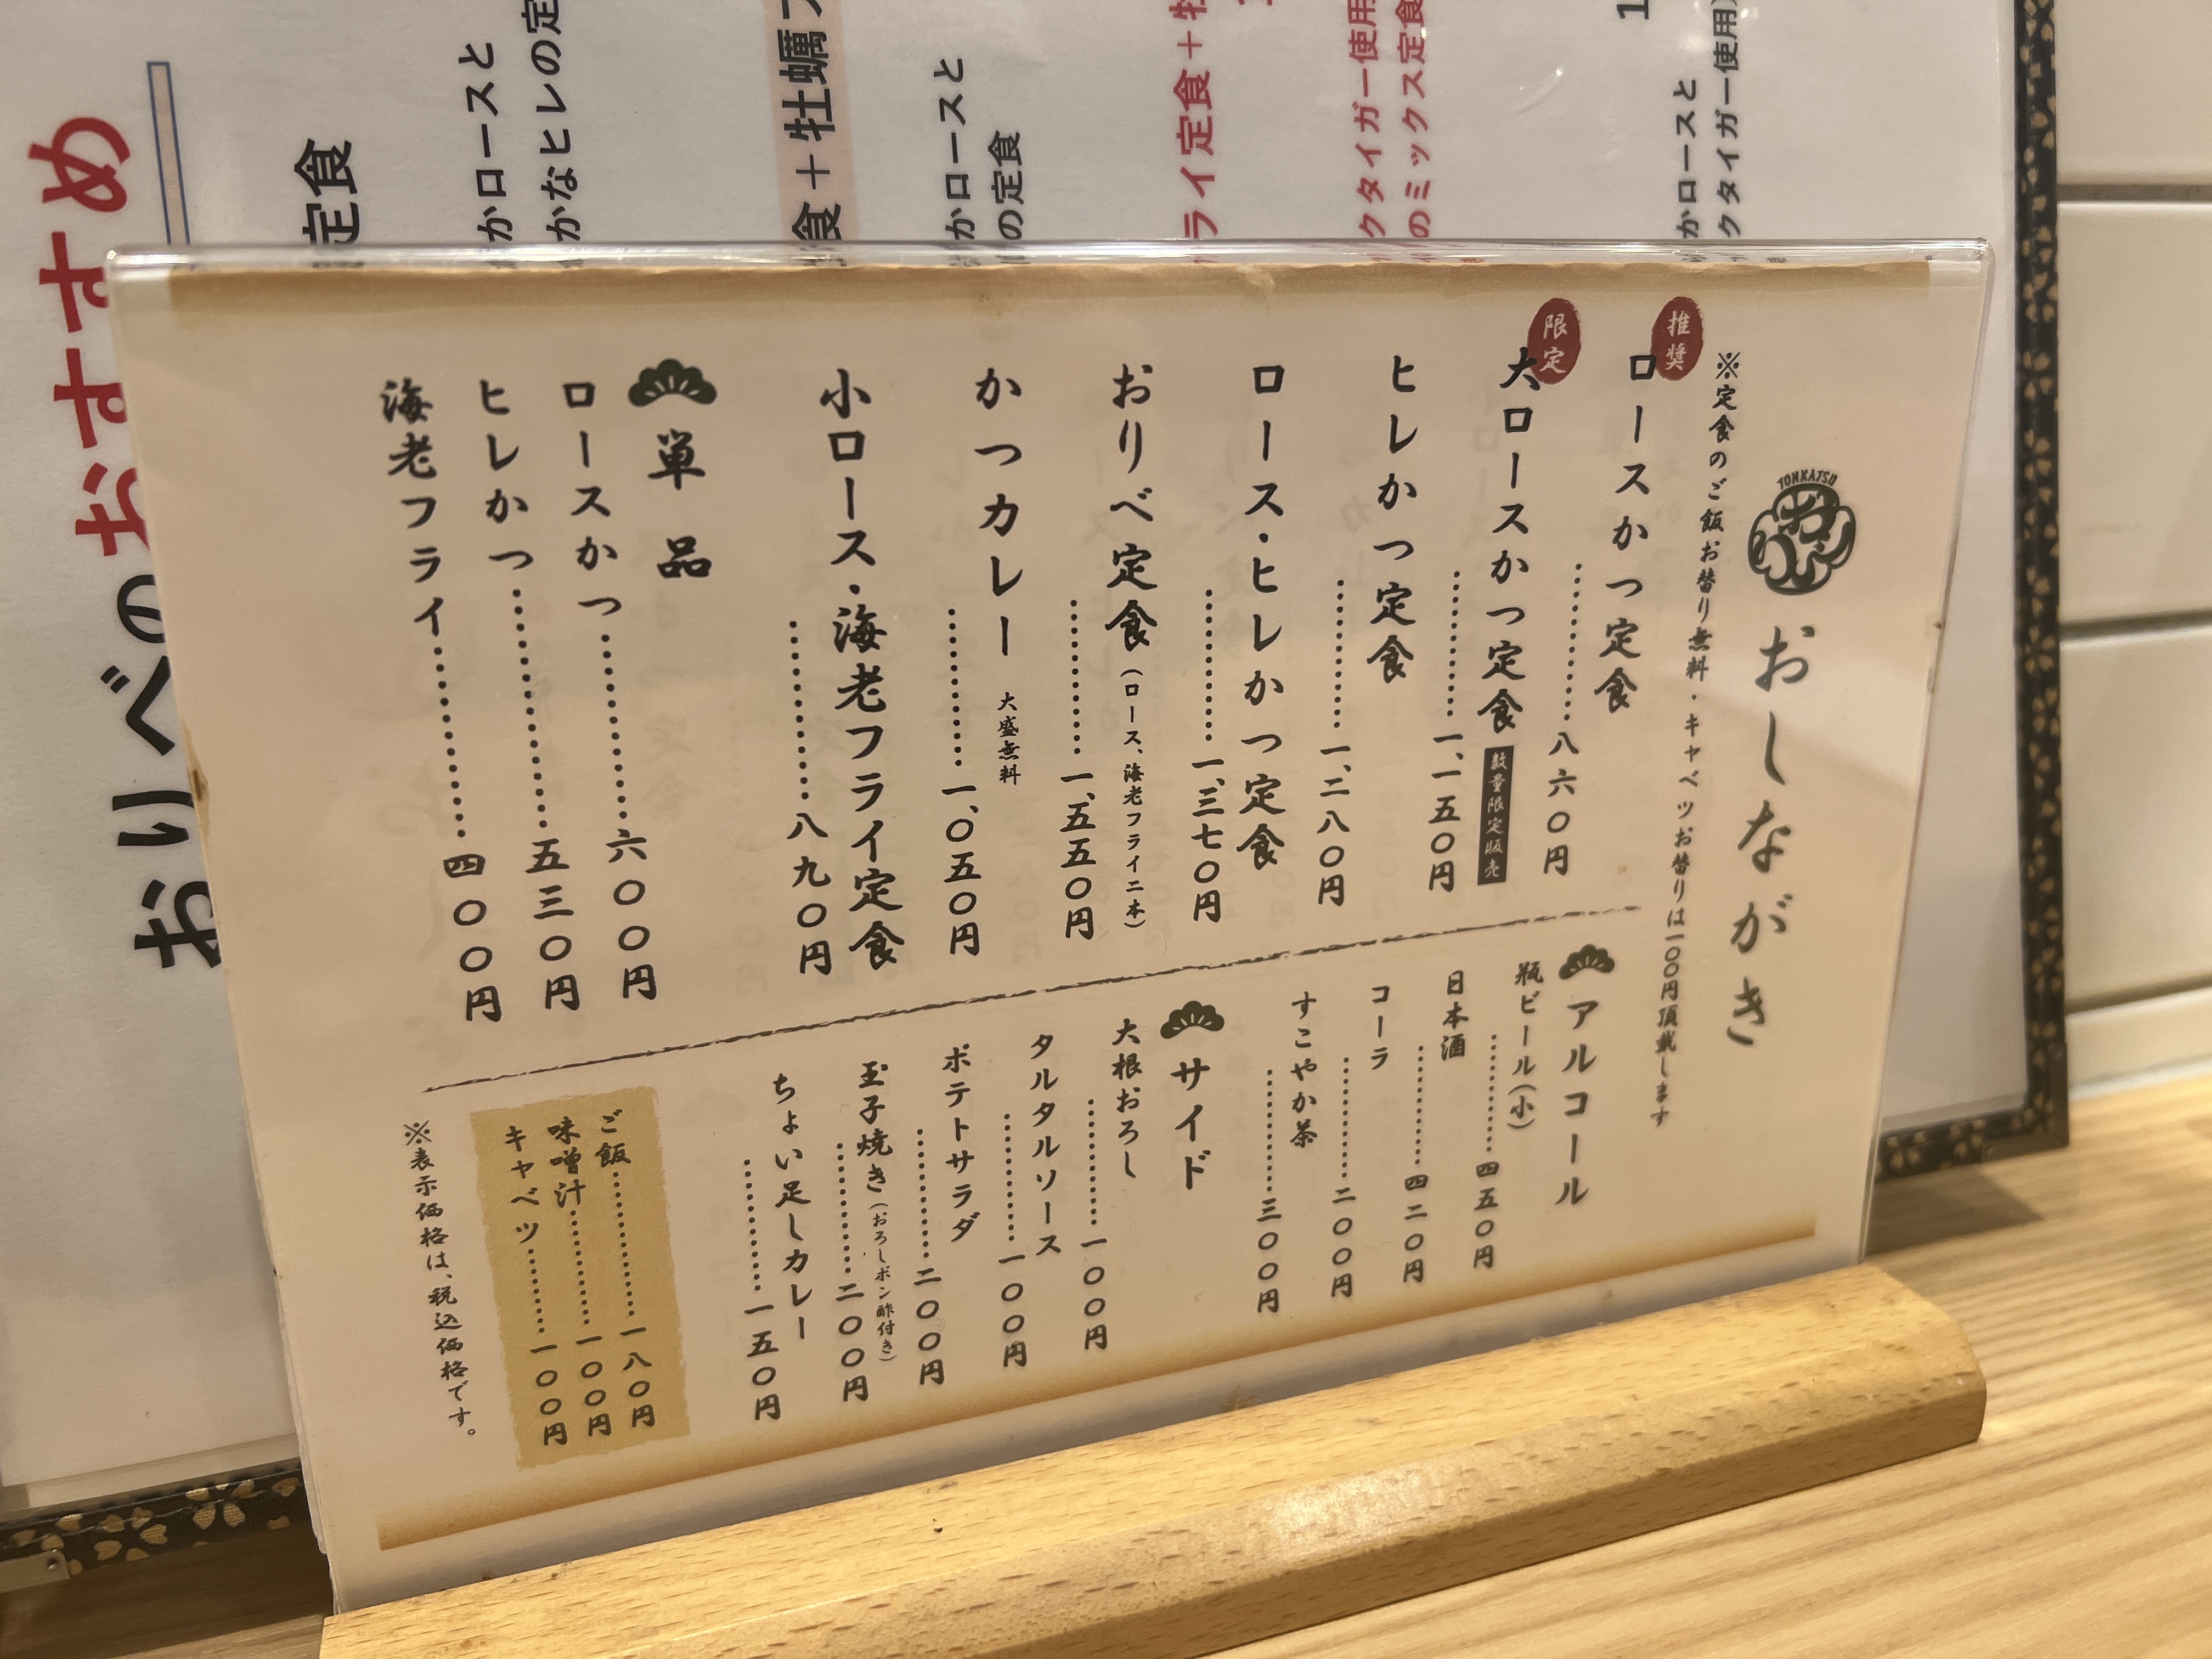 TONKATSU
おりべ
おしながき
※定食のご飯お替り無料・キャベツお替りは一〇〇円頂戴します
推奨
ロースかつ定食
八六〇円
限定
大ロースかつ定食
数量限定販売
一、一五〇円
ヒレかつ定食
一、二八〇円
ロース・ヒレかつ定食
一、三七〇円
おりべ定食(ロース、海老フライ二本)
一、五五〇円
かつカレー 大盛無料
一、〇五〇円
小ロース・海老フライ定食
八九〇円
単品
ロースかつ…………六〇〇円
ヒレかつ…………五三〇円
海老フライ…………四〇〇円
アルコール
瓶ビール(小)
四五〇円
日本酒
四二〇円
コーラ
二〇〇円
すこやか茶
三〇〇円
サイド
大根おろし
一〇〇円
タルタルソース
一〇〇円
ポテトサラダ
二〇〇円
玉子焼き(おろしポン酢付き)
二〇〇円
ちょい足しカレー
一五〇円
ご飯…………一八〇円
味噌汁…………一〇〇円
キャベツ…………一〇〇円
※表示価格は、税込価格です。
おりべのおすすめ
定食
かロースと
かなヒレの定
食+牡蠣フ
かロースと
の定食
ライ定食+牡
クタイガー使用
のミックス定食
1
かロースと
クタイガー使用)